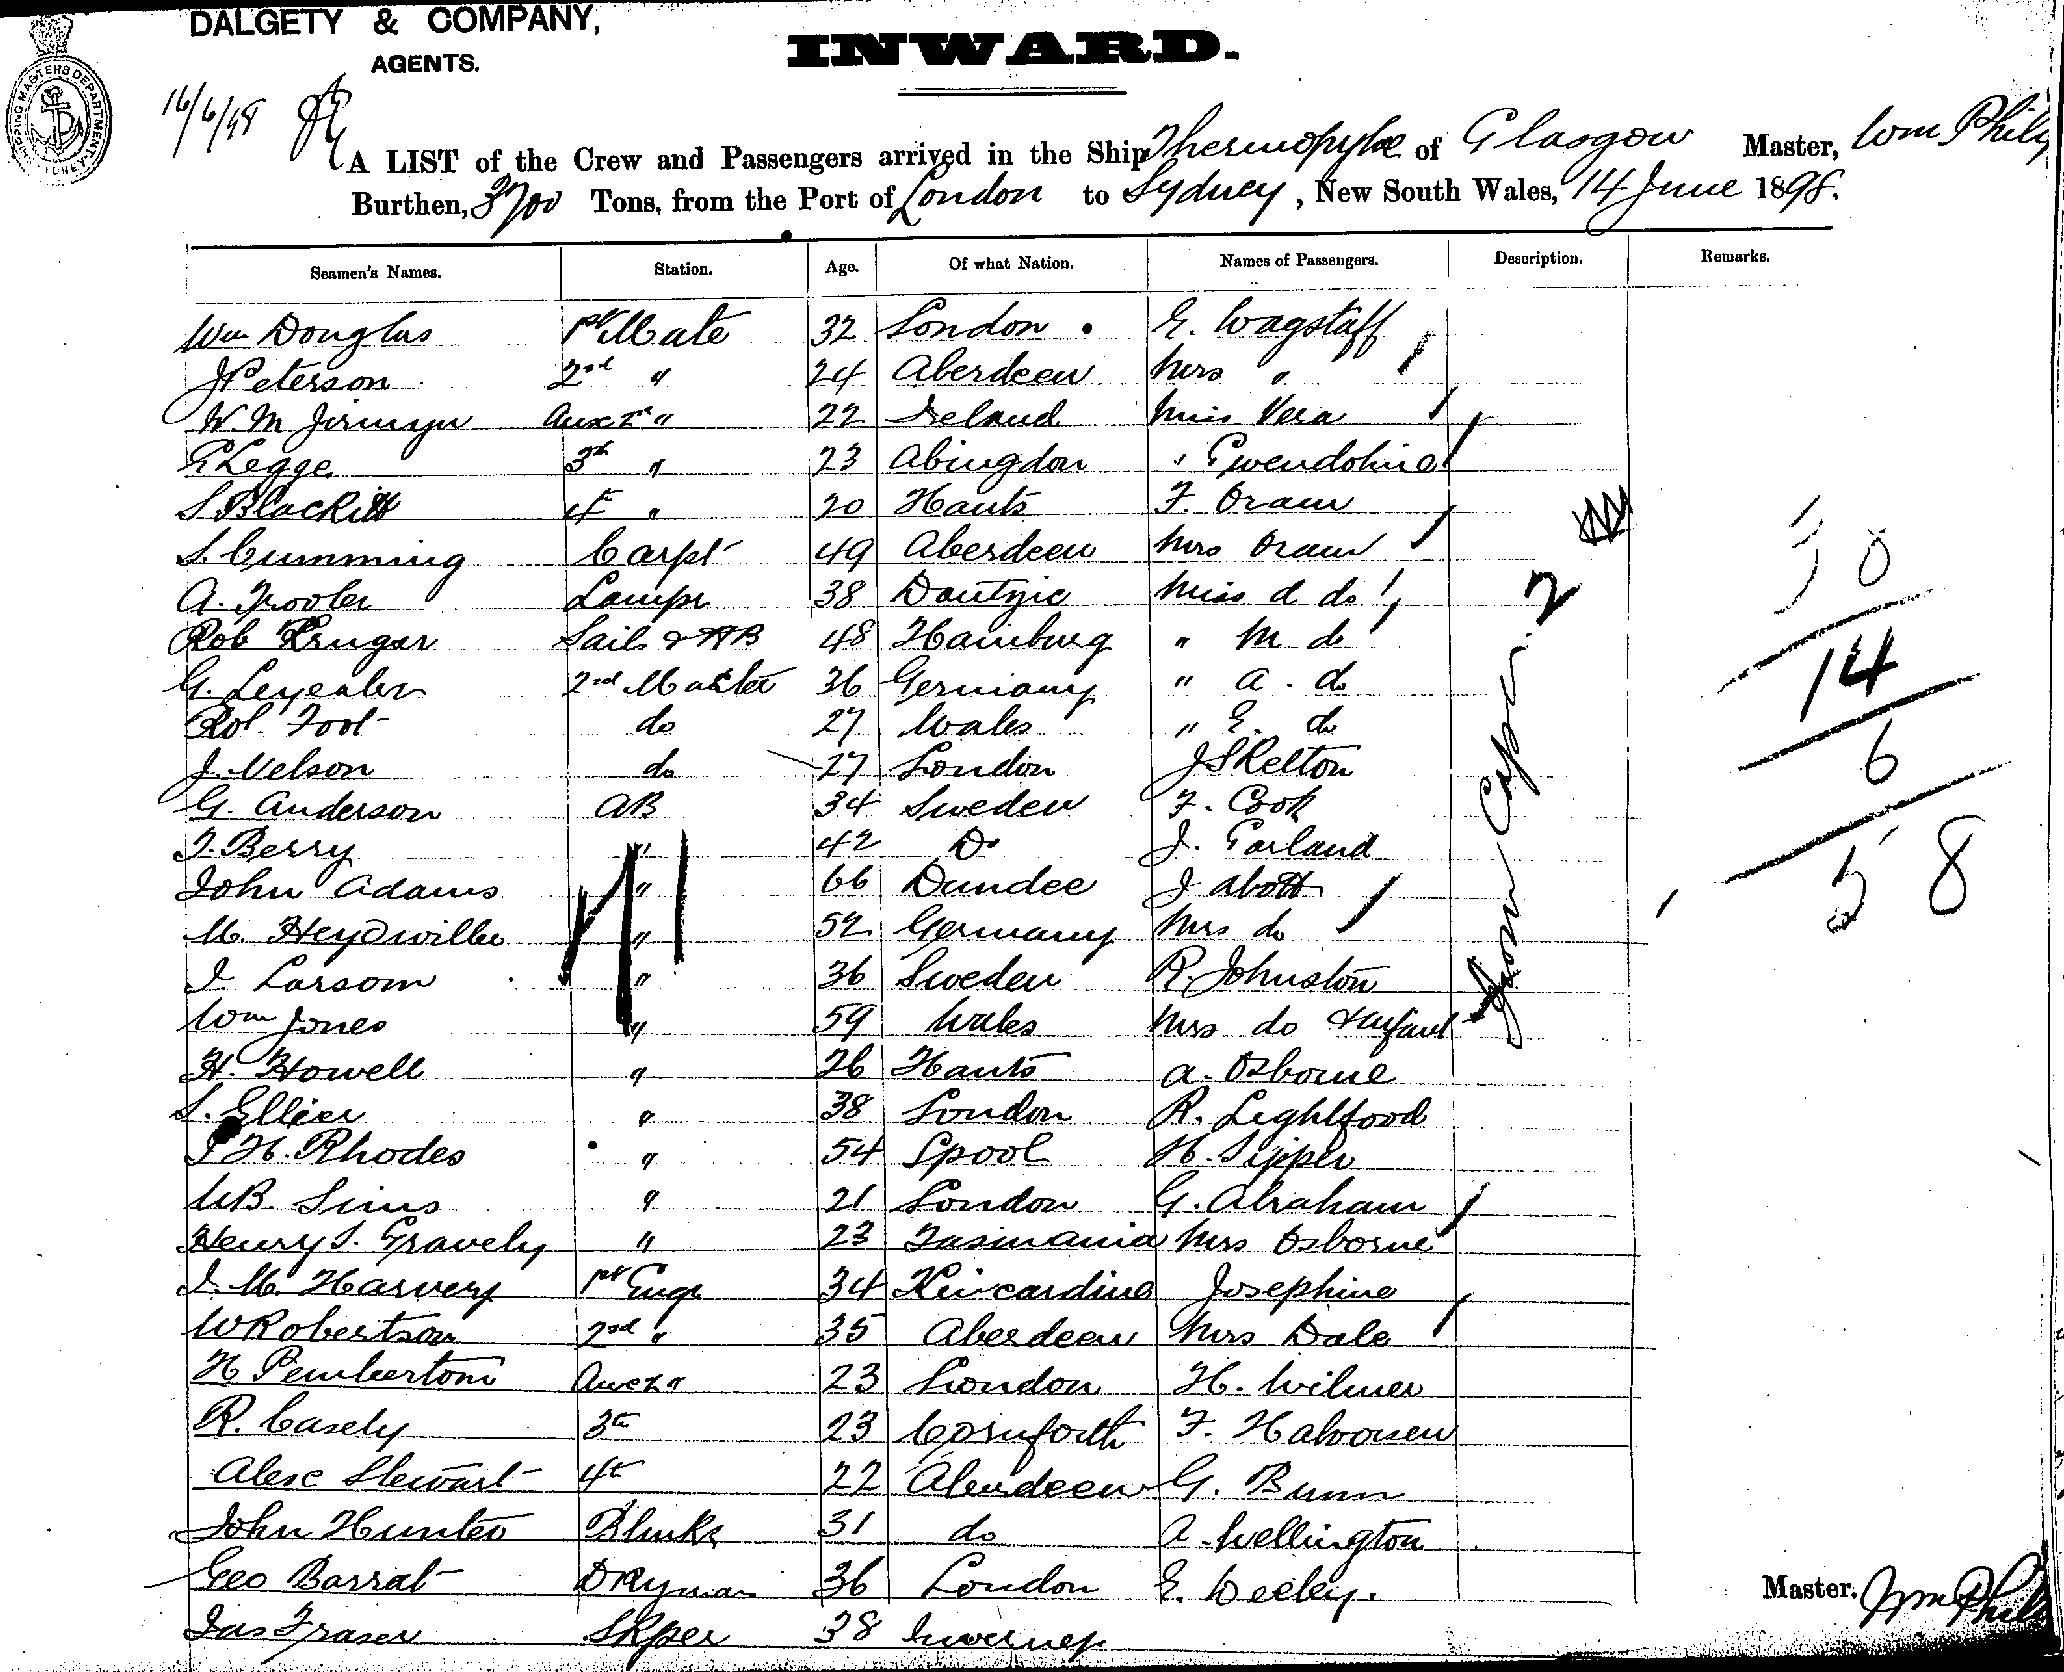 DALGETY & COMPANY,
AGENTS.
INWARD.
SHIPPING MASTERS DEPARTMENT
16/6/98
A LIST of the Crew and Passengers arrived in the Ship Thermopylae of Glasgow Master, Wm Philip
Burthen, 3700 Tons, from the Port of London to Sydney, New South Wales, 14 June 1898.
Seamen's Names. Station. Age. Of what Nation. Names of Passengers. Description. Remarks.
Wm Douglas 1st Mate 32 London E. Wagstaff
J Peterson 2nd " 24 Aberdeen Mrs "
W M Jirmyn Aux 2nd " 22 Ireland Miss Vera
Legge 3rd " 23 Abingdon " Gwendoline
S Blackitt 4th " 20 Hants F. Oram
S. Cumming Carpt 49 Aberdeen Mrs Oram
A. Lampr 38 Dantzic Miss d do
Rob Krugar Sails & AB 48 Hamburg " M do
G. 2nd Master 36 Germany " A. do
Rob. Foot do 27 Wales " E. do
J. Nelson do 27 London J Skelton
G. Anderson AB 34 Sweden F. Cook
J. Berry " 42 Do J. Garland
John Adams " 66 Dundee J Abott
M. Heydwiller " 52 Germany Mrs do
J Larsom " 36 Sweden R. Johnston
Wm Jones " 59 Wales Mrs do & Infant
H. Howell " 26 Hants A. Osborne
S. Ellier " 38 London R. Lightfood
J H. Rhodes " 54 Lpool H. Sipper
WB. Sims " 21 London G. Abraham
Henry S. Gravely " 23 Tasmania Mrs Osborne
J. M. Harvey 1st Engr 34 Kincardine Josephine
W Robertson 2nd " 35 Aberdeen Mrs Dale
H Pemberton Aux 2 " 23 London H. Wilmer
R. Casely 3rd 23 Cornforth F. Halvorsen
Alex Stewart 4th 22 Aberdeen G. Bunn
John Hunter 31 do A. Wellington
Geo Barrat DKyman 36 London E. Weeley.
Jas Fraser SKper 38 Inverness
From Cape. 2
14
6
58
Master. Wm Philip